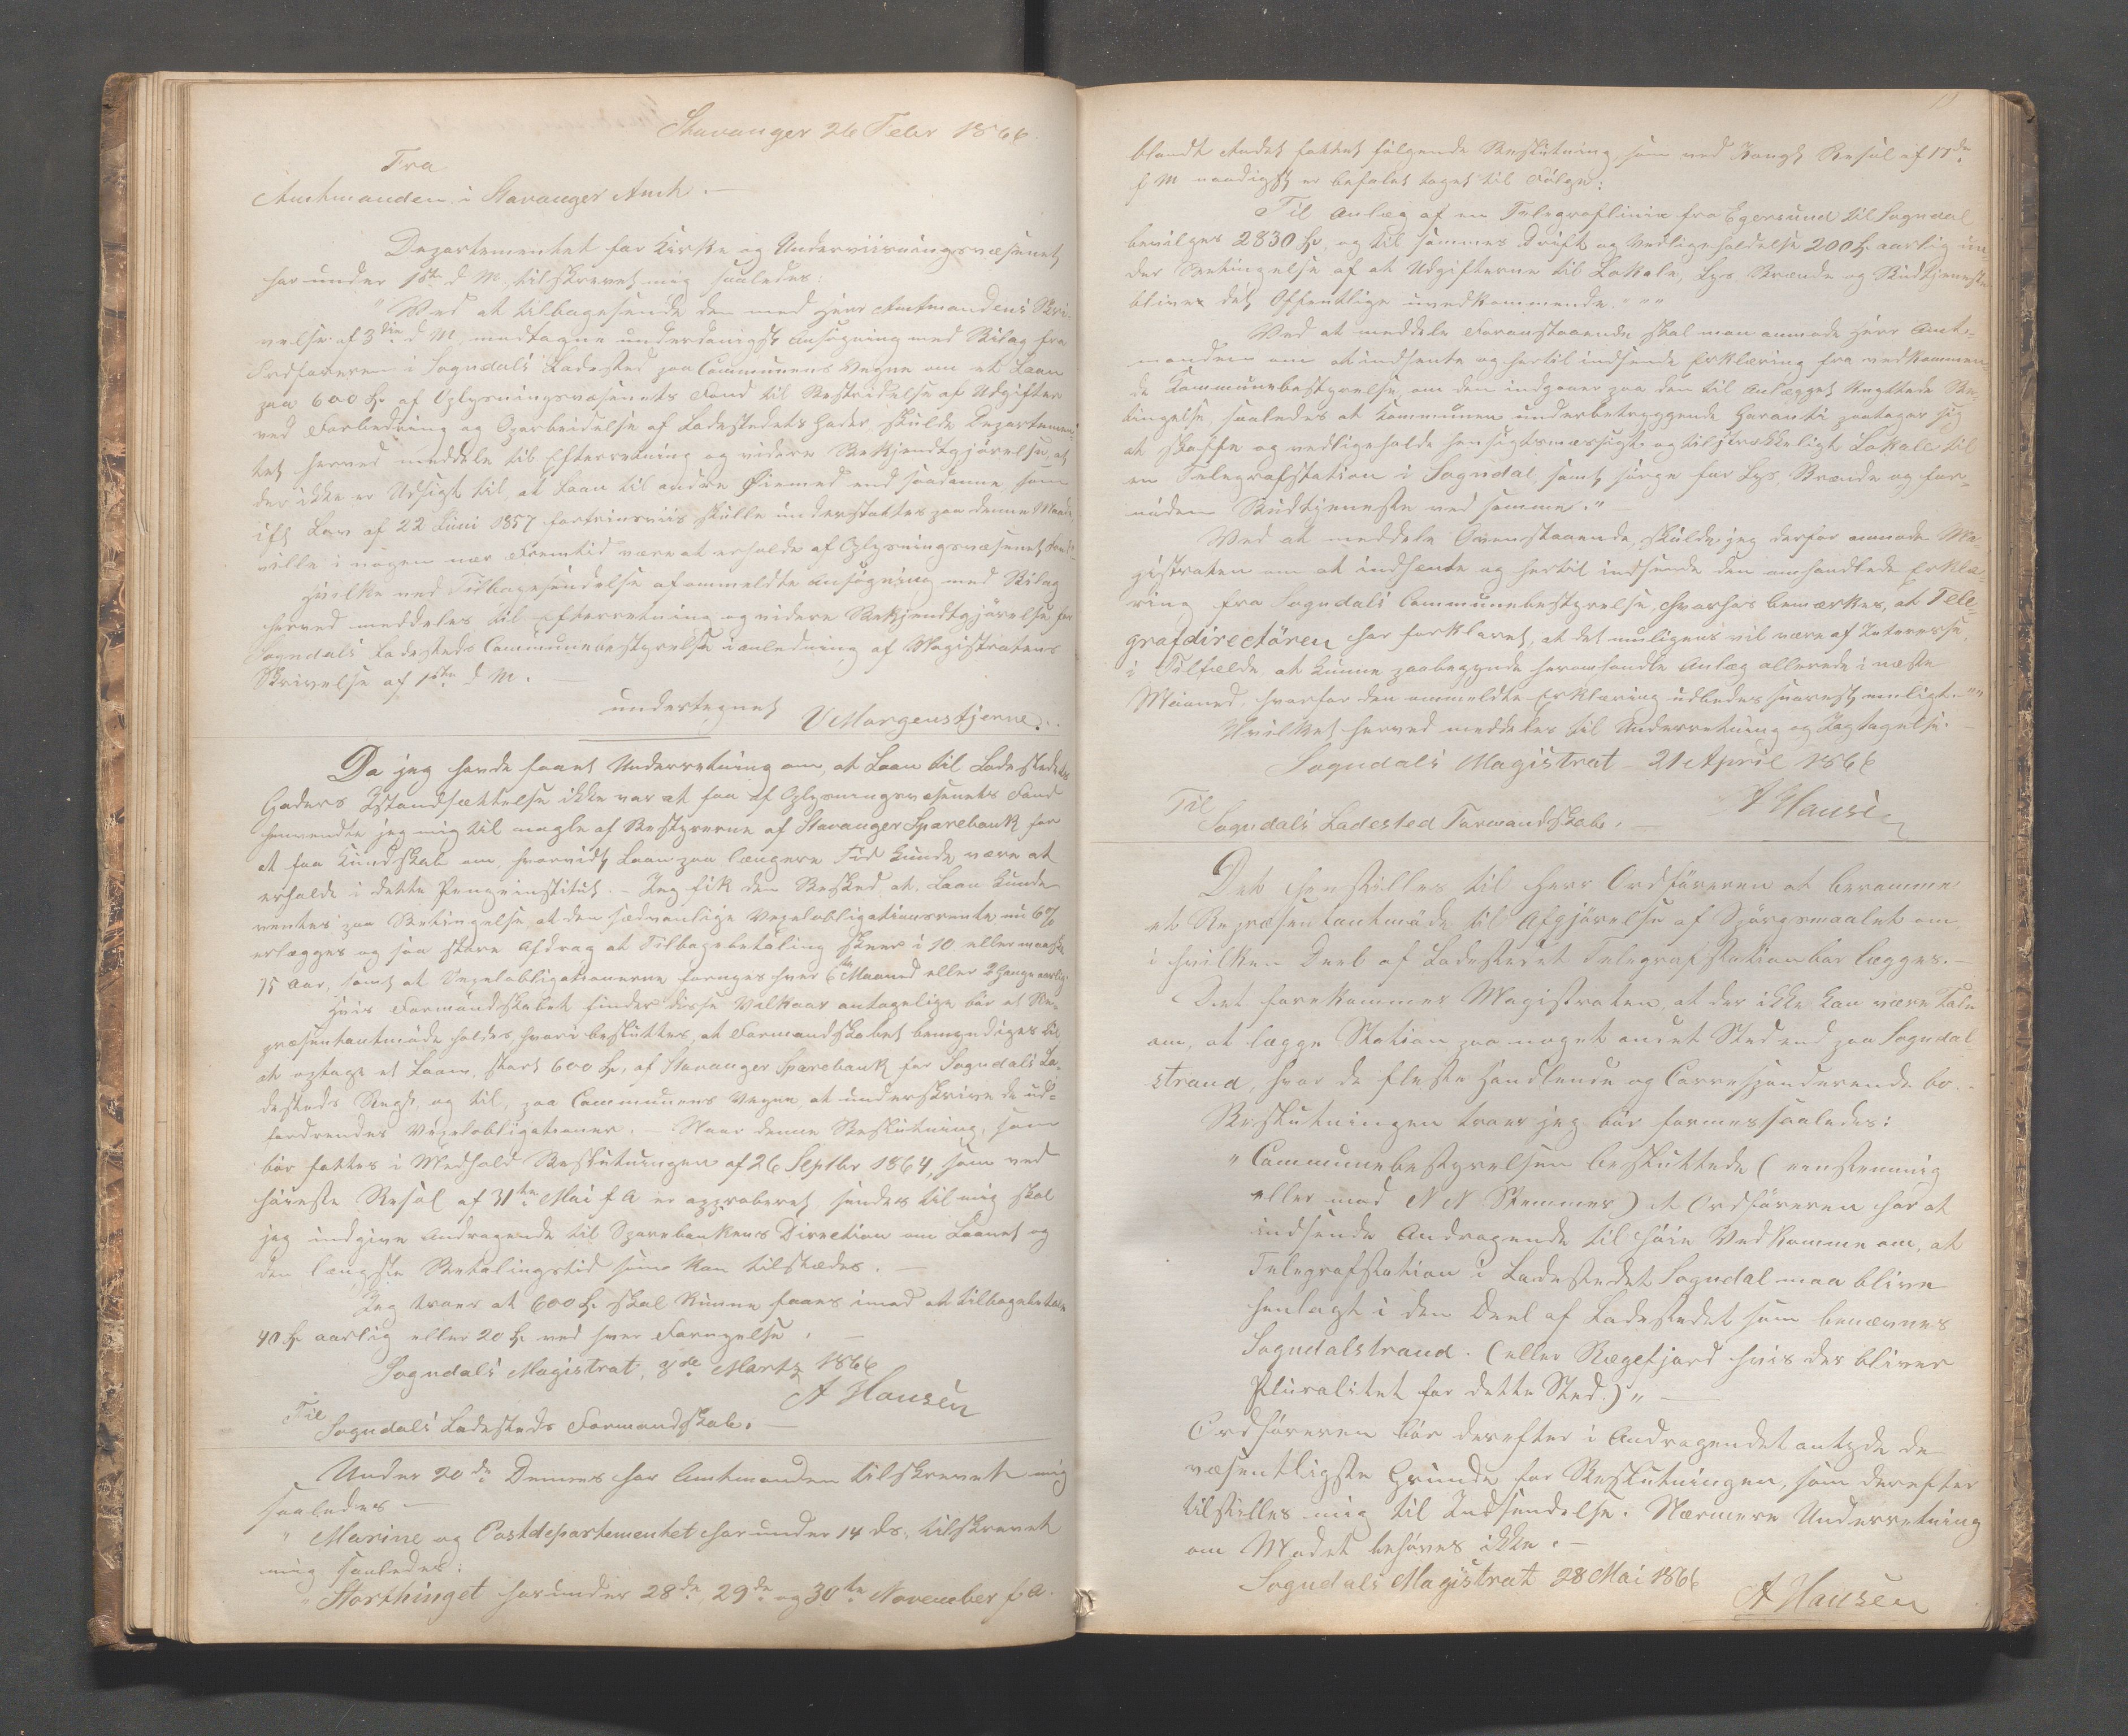 Stavanger 26 Febr 1866.
Fra
Amtmanden i Stavanger Amt. —
Departementet for Kirke og Underviisningsvæsenet
har under 1ste d M. tilskrevet mig saaledes:
"Ved at tilbagesende den med Herr Amtmandens Skri-
velse af 3die d M. modtagne underdanigst Ansøgning med Bilag fra
Ordføreren i Sogndals Ladested paa Communens Vegne om et Laan
paa 600 Spd af Oplysningsvæsenets Fond til Bestridelse af Udgifter
ved Forbedring og Oparbeidelse af Ladestedets Gader skulde Departemen-
tet herved meddele til Efterretning og videre Bekjendtgjørelse, at
der ikke er Udsigt til, at Laan til andre Øiemed end saadanne, som
ift Lov af 22 Juni 1857 fortrinsviis skulle understøttes paa denne Maade,
ville i nogen nær Fremtid være at erholde af Oplysningsvæsenets Fond"
Hvilke ved Tilbagesendelse af ommeldte Ansøgning med Bilag
herved meddeles til Efterretning og videre Bekjendtgjørelse for
Sogndals Ladesteds Communebestyrelse i anledning af Magistratens
Skrivelse af 1ste d M. —
undertegnet
V Morgenstjerne.
Da jeg havde faaet Underretning om, at Laan til Ladestedets
Gaders Istandsættelse ikke var at faa af Oplysningsvæsenets Fond
henvendte jeg mig til nogle af Bestyrerne af Stavanger Sparebank for
at faa Kundskab om, hvorvidt Laan paa længere Tid kunde være at
erholde i dette Pengeinstitut. — Jeg fik den Besked at Laan kunde
ventes paa Betingelse at den sædvanlige Vexelobligationsrente nu 6%
erlægges og saa store Afdrag at Tilbagebetaling skeer i 10 eller maaske
15 Aar, samt at Vexelobligationerne fornyes hver 6te Maaned eller 2 Gange aarlig.
Hvis Formandskabet finder disse Vilkaar antagelige bør et Re-
præsentantmøde holdes hvori besluttes, at Formandskabet bemyndiges til
at optage et Laan, stort 600 Spd, af Stavanger Sparebank for Sogndals La-
desteds Regn. og til, paa Communens Vegne at underskrive de ud-
fordrendes Vexelobligationer. — Naar denne Beslutning, som
bør fattes i Medhold Beslutningen af 26 Septbr 1864, som ved
høieste Resol af 31te Mai f A er approberet, sendes til mig skal
jeg indgive Andragende til Sparebankens Direction om Laanet og
den længste Betalingstid som kan tilstædes. —
Jeg troer at 600 Spd skal kunne faaes imod at tilbagebetale
40 Spd aarlig eller 20 Spd ved hver Fornyelse. —
Sogndals Magistrat, 8de Marts 1866
A Hansen
Til
Sogndals Ladesteds Formandskab. —
Under 20de Dennes har Amtmanden tilskrevet mig
saaledes —
" Marine og Postdepartementet har under 14 ds. tilskrevet
mig saaledes:
"Storthinget har under 28de, 29de og 30te November f A.
blandt Andet fattet følgende Beslutning som ved Kongl. Resol af 17de
f M naadigst er befalet taget til Følge:
Til Anlæg af en Telegraflinie fra Egersund til Sogndal
bevilges 2830 Spd, og til sammes Drift og Vedligeholdelse 200 Spd aarlig un-
der Betingelse af at Udgifterne til Lokale, Lys Brænde og Budtjeneste
bliver det Offentlige uvedkommende." " "
Ved at meddele Foranstaaende skal man anmode Herr Amt-
manden om at indhente og hertil indsende Erklæring fra vedkommen-
de Kommunebestyrelse, om den indgaaer paa den til Anlægget knyttede Be-
tingelse, saaledes at Kommunen under betryggende Garanti paatager sig
at skaffe og vedligeholde hensigtsmæssigt og tilstrækkeligt Lokale til
en Telegrafstation i Sogndal, samt sørge for Lys, Brænde og for-
nøden Budtjeneste ved samme." —
Ved at meddele Ovenstaaende, skulde jeg derfor anmode Ma-
gistraten om at indhente og hertil indsende den omhandlede Erklæ-
ring fra Sogndals Communebestyrelse, hvorhos bemærkes, at Tele-
grafdirectören har forklaret, at det muligens vil være af Interesse,
i Tilfælde at kunne paabegynde heromhandle Anlæg allerede i næste
Maaned, hvorfor den ommeldte Erklæring udbedes snarest muligt. " "
Hvilket herved meddeles til Underretning og Iagtagelse. —
Sogndals Magistrat 21 April 1866
A Hansen
Til
Sogndals Ladested Formandskab. —
Det henstilles til Herr Ordføreren at beramme
et Repræsentantmøde til Afgjørelse af Spørgsmaalet om
i hvilken Deel af Ladestedet Telegrafstation bør lægges. —
Det forekommer Magistraten, at der ikke kan være Tale
om, at lægge Station paa noget andet Sted end paa Sogndal-
strand, hvor de fleste Handlende og Correspenderende bo. —
Beslutningen troer jeg bør formes saaledes:
" Communebestyrelsen besluttede (eenstemmig
eller med N N Stemmer) at Ordføreren har at
indsende Andragende til høie Vedkomme om, at
Telegrafstation i Ladestedet Sogndal maa blive
henlagt i den Deel af Ladestedet som benævnes
Sogndalstrand. (eller Rægefjord hvis der bliver
Pluralitet for dette Sted.)" —
Ordføreren bør derefter i Andragendet antyde de
væsentligste Grunde for Beslutningen, som derefter
tilstilles mig til Indsendelse. Nærmere Underretning
om Mødet behøves ikke. —
Sogndals Magistrat 28 Mai 1866
A Hansen